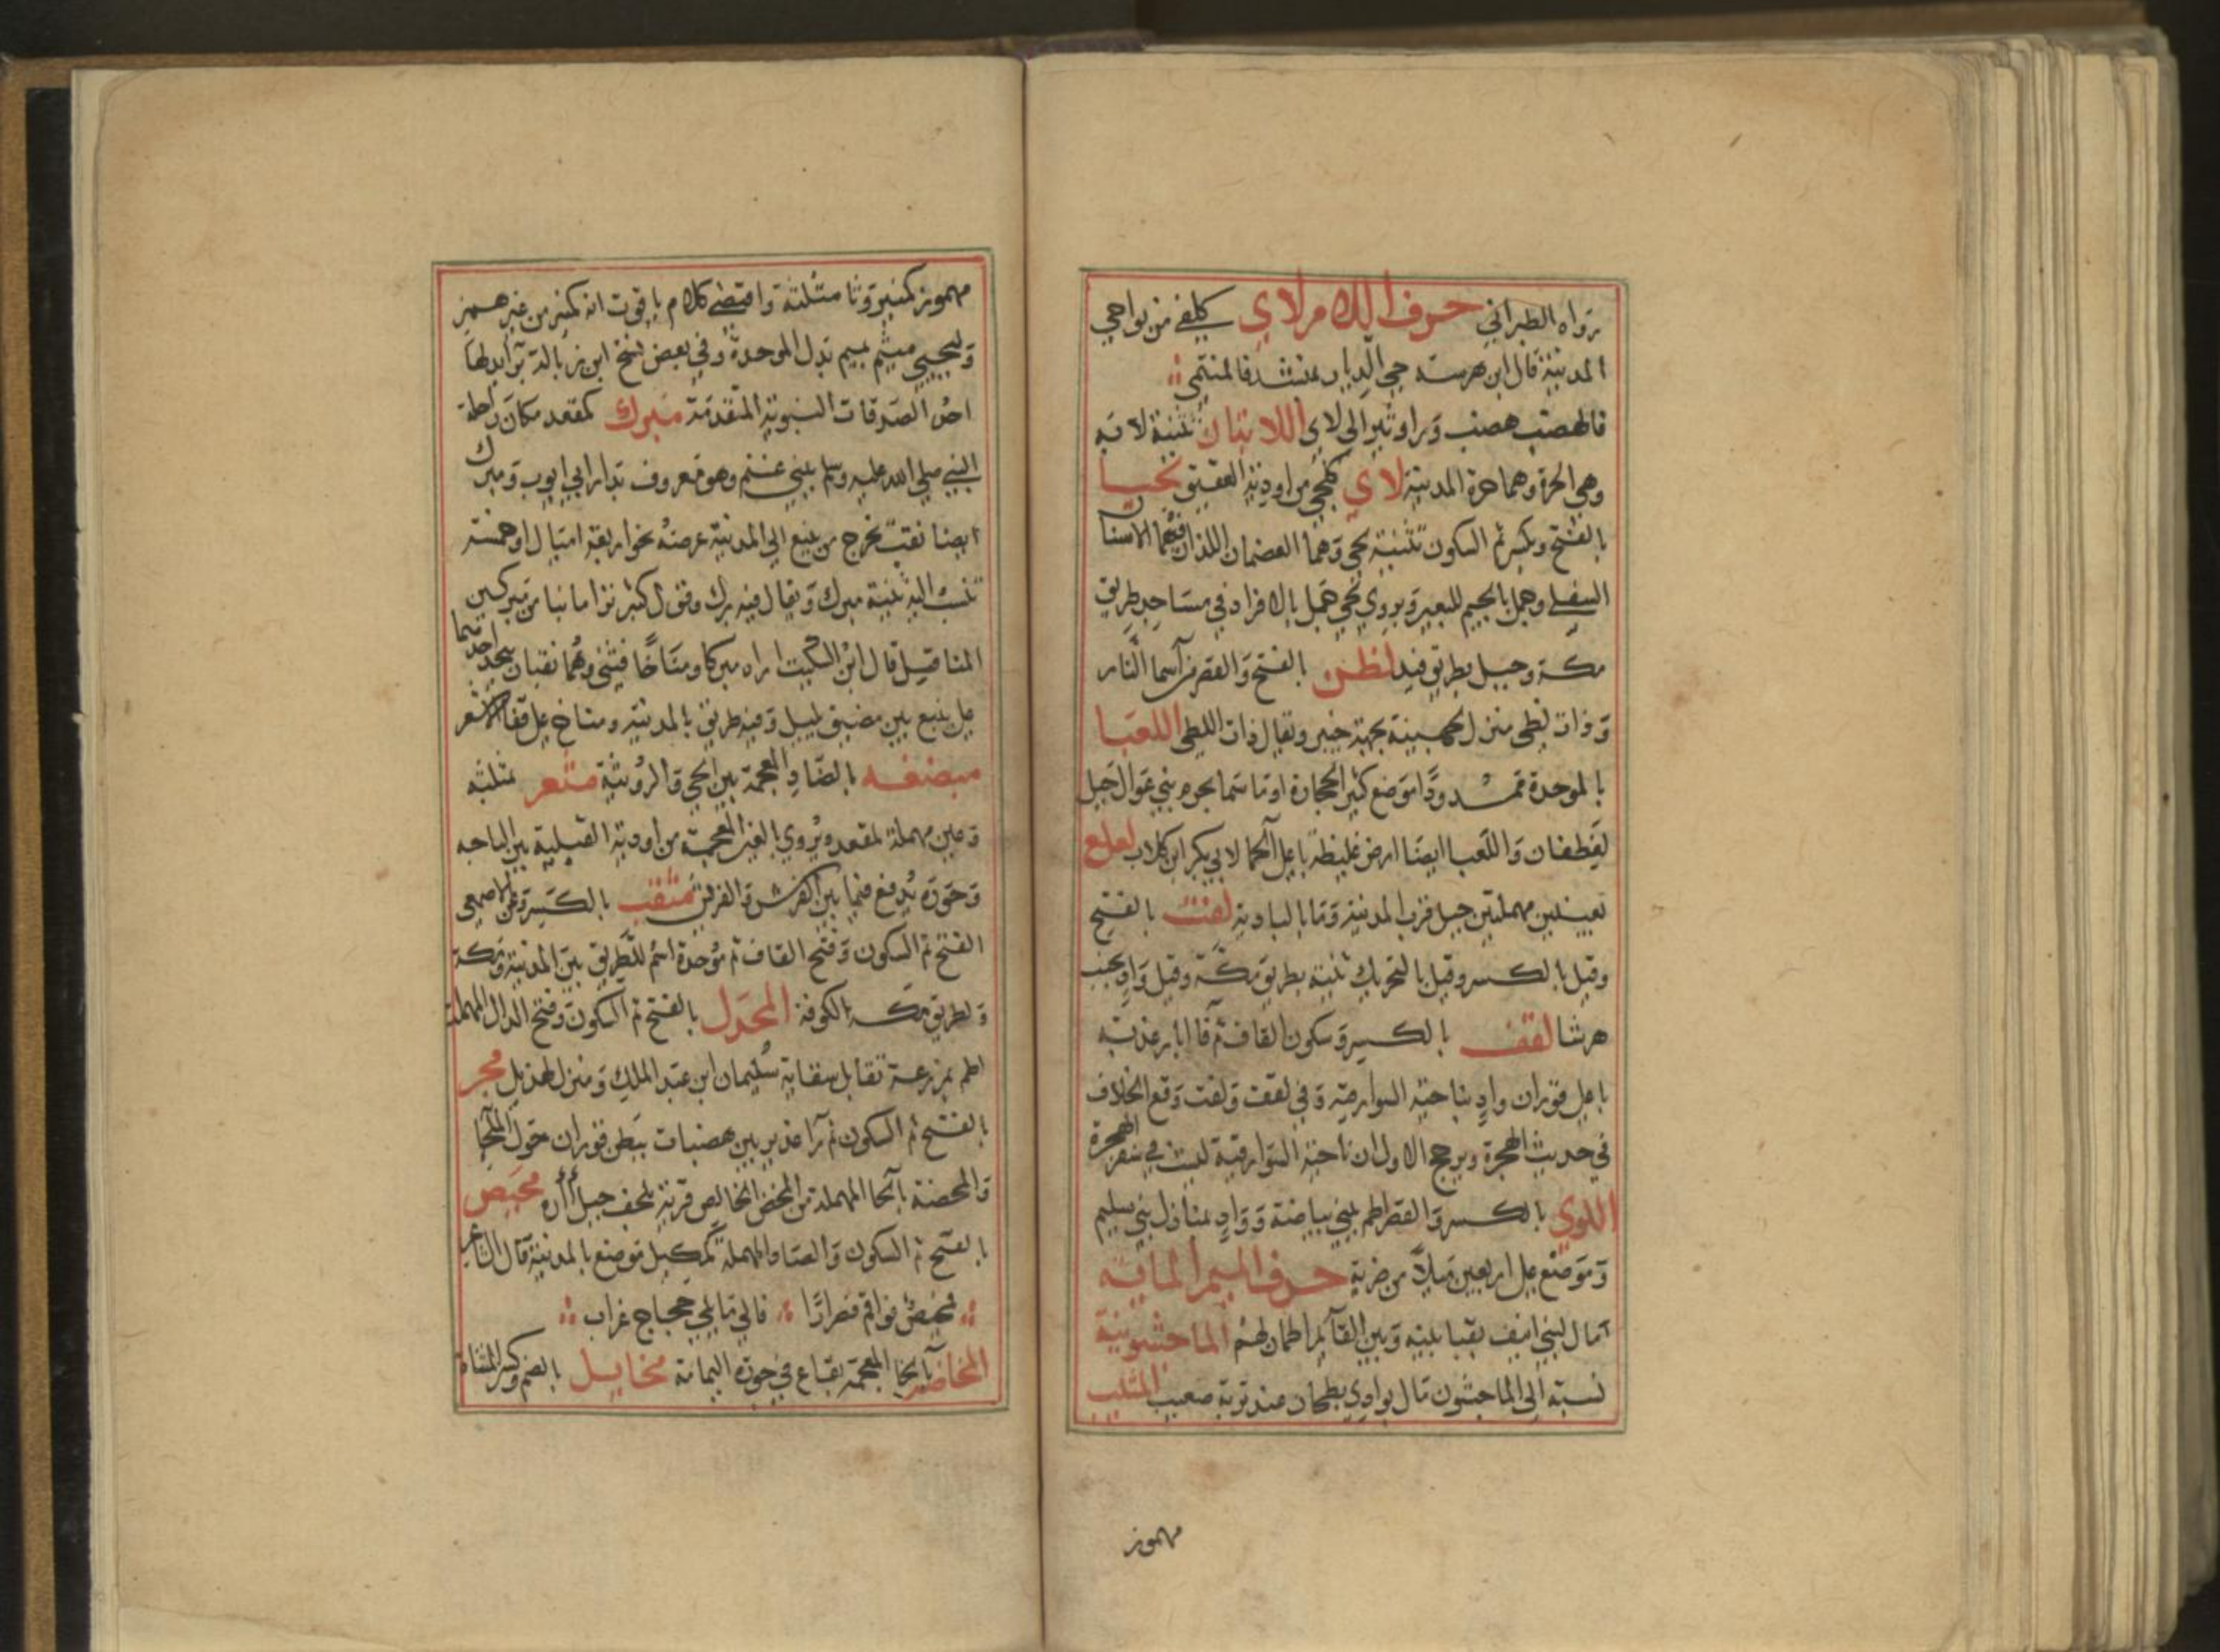 رواه الطبراني حرف اللام لاي كلفى من نواحي
المدينة قال ابن هرمة حي الديار بمنشد فالمنتمى
فالهضب هضب وراوتين الى لاى اللابتان تثنية لابة
وهي الحرة وهما حرة المدينة لاي كلحى من اودية العقيق لحيا
بالفتح ويكسر ثم السكون تثنية لحى وهما العضمان اللذان فيهما الاسنان
السفلى وحمل بالجيم للبعير ويروى لحى جمل بالافراد في مساجد طريق
مكة وجبل بطريق فيد لظى بالفتح والقصر من اسما النار
وذات لظى منزل لجهينة بجهة خيبر ويقال ذات اللظى اللعبا
بالموحدة ممدودا موضع كثير الحجارة او ما سما بحرم بني عوال جبل
لغطفان واللعبا ايضا ارض غليظة باعلى الحما لابي بكر ابن كلاب لعلع
بعينين مهملتين جبل قرب المدينة وما بالبادية لفت بالفتح
وقيل بالكسر وقيل بالتحريك ثنية بطريق مكة وقيل واد بجنب
هرشا لقف بالكسر وسكون القاف ثم فا ابار عذبة
باعلى قوران واد بناحية السوارقية وفي لقف ولفت وقع الخلاف
في حديث الهجرة ويرجح الاول ان ناحية السوارقية ليست في سفر الهجرة
اللوي بالكسر والقصر اطم لبني بياضة وواد بمنازل بني سليم
وموضع على اربعين ميلا من ضرية حرف الميم المابة
مال لبني انيف بقبا بينه وبين القائم اطمان لهم الماجشونية
نسبة الى الماجشون مال بوادي بطحان عند تربة صعيب المثيب
مهموز
مهموز كمنبر وثا مثلثة واقتضى كلام ياقوت انه كمنبر من غير همز
وليحيى ميثم بميم بدل الموحدة وفي بعض نسخ ابن زبالة بر ابدلها
احد الصدقات النبوية المتقدمة مبرك كمقعد مكان راحلة
النبي صلى الله عليه وسلم ببني غنم وهو معروف بدار ابي ايوب ومبرك
ايضا نقب يخرج من ينبع الى المدينة عرضه نحو اربعة اميال او خمسة
تنسب اليه ثنية مبرك ويقال فيه برك وقول كثير ترامانبا من مبركين
المناقيل قال ابن السكيت اراد مبركا ومناخا فثنى وهما نقبان ينحدر احدهما
على ينبع بين مضيق يليل وفيه طريق بالمدينة ومناخ على قفا الاشعر
مبضعه بالضاد المعجمة بين الحي والرويثة مثعر بمثلثة
وعين مهملة لمقعد ويروي بالغين المعجمة من اودية القبلية بين الباحه
وحوزه يدفع فيما بين الفرش والفريش مثقب بالكسر وعن الاصمعي
الفتح ثم السكون وفتح القاف ثم موحدة اسم للطريق بين المدينة ومكة
ولطريق مكة بالكوفة المجدل بالفتح ثم السكون وفتح الدال المهملة
اطم بمزرعة تقابل سقاية سليمان ابن عبد الملك ومنزل لهذيل محر
بالفتح ثم السكون ثم را غدير بين هضبات ببطن قوران حول الملحا
والمحضة بالحا المهملة من المخض الخالص قرية لحف جبل اره محيص
بالفتح ثم السكون والصاد المهملة كمكيل موضع بالمدينة قال الشاعر
فمحيص فواقم فصرارا فالي ما يلي حجاج غراب
المخاضر بالخا المعجمة بقاع في حوزه اليمامة مخايل بالضم وكسر المثناة